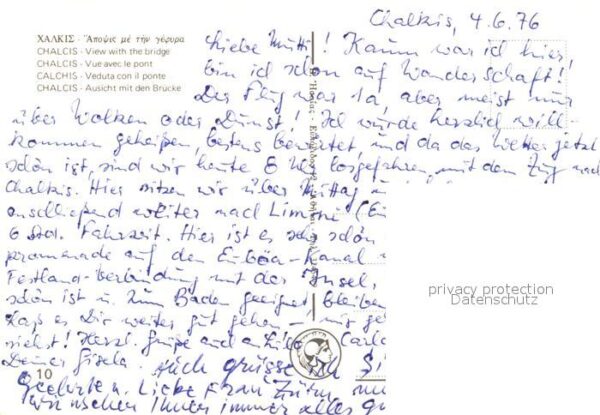 Chalkis, 4.6.76
ΧΑΛΚΙΣ - Ἄποψις μέ τήν γέφυρα
CHALCIS - View with the bridge
CHALCIS - Vue avec le pont
CALCHIS - Veduta con il ponte
CHALCIS - Ausicht mit den Brücke
Liebe Mutti! Kaum war ich hier,
bin ich schon auf Wanderschaft!
Der Flug war 1a, aber meist nur
über Wolken oder Dunst! Ich wurde herzlich will
kommen geheißen, bestens bewirtet, und da das Wetter jetzt
schön ist, sind wir heute 8 Uhr losgefahren, mit dem Zug nach
Chalkis. Hier sitzen wir über Mittag
anschließend weiter nach Limni
6 Std. Fahrzeit. Hier ist es sehr schön
promenade auf den Euböa-Kanal
Festland-Verbindung mit der Insel,
schön ist u. zum Baden geeignet bleiben
Laß es Dir weiter gut gehen - mir
siehst! Herzl. Grüße auch an
Deiner Gisela. Auch grüsse ich Si
Geehrte u. Liebe Frau
wir wünschen Ihnen immer alles gu
10
privacy protection
Datenschutz